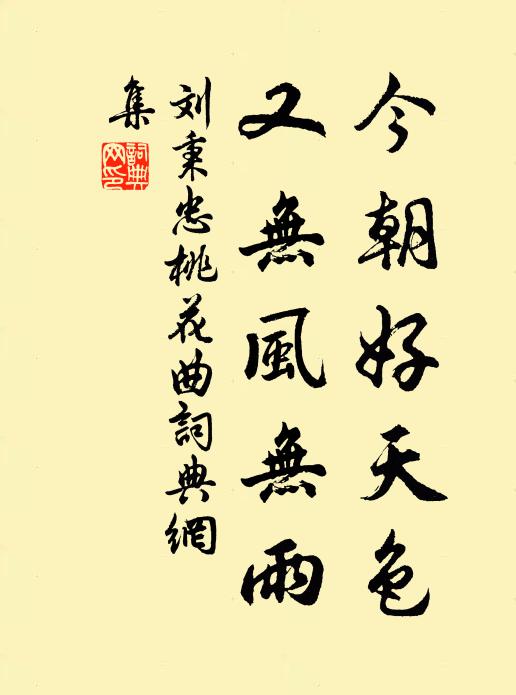 今朝好天色
又無風無雨
刘秉忠桃花曲詞典網
集
詞典
网印